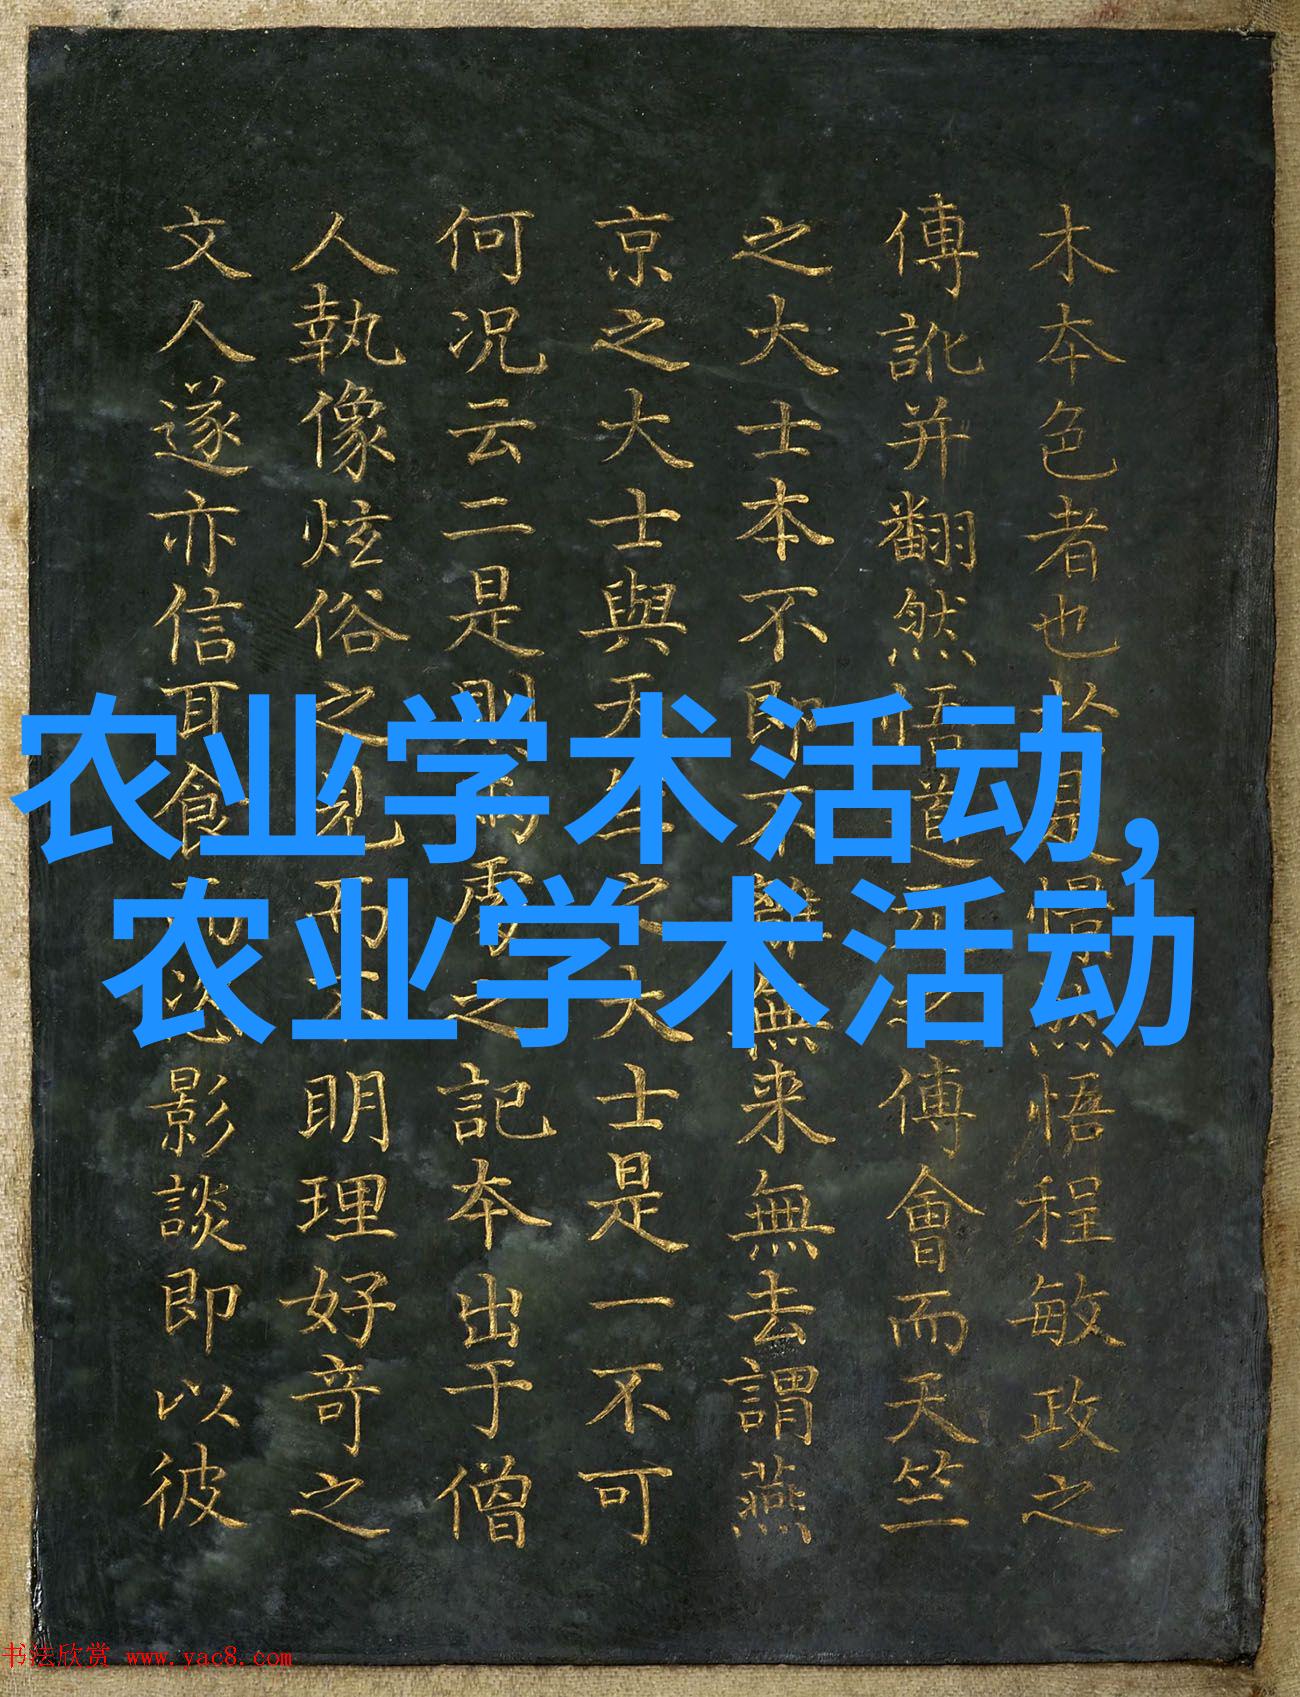 木本色者也悟程敏政之
傳訛并翻然悟道傅會而天竺
之大士本不即不離無来無去謂燕
京之大士與天之大士是一不可
何况云二是則之記本出于僧
人執像炫俗之見而不明理好奇之
文人遂亦信耳食影談即以彼
农业学术活动,
农业学术活动
书法欣赏 www.yac8.com